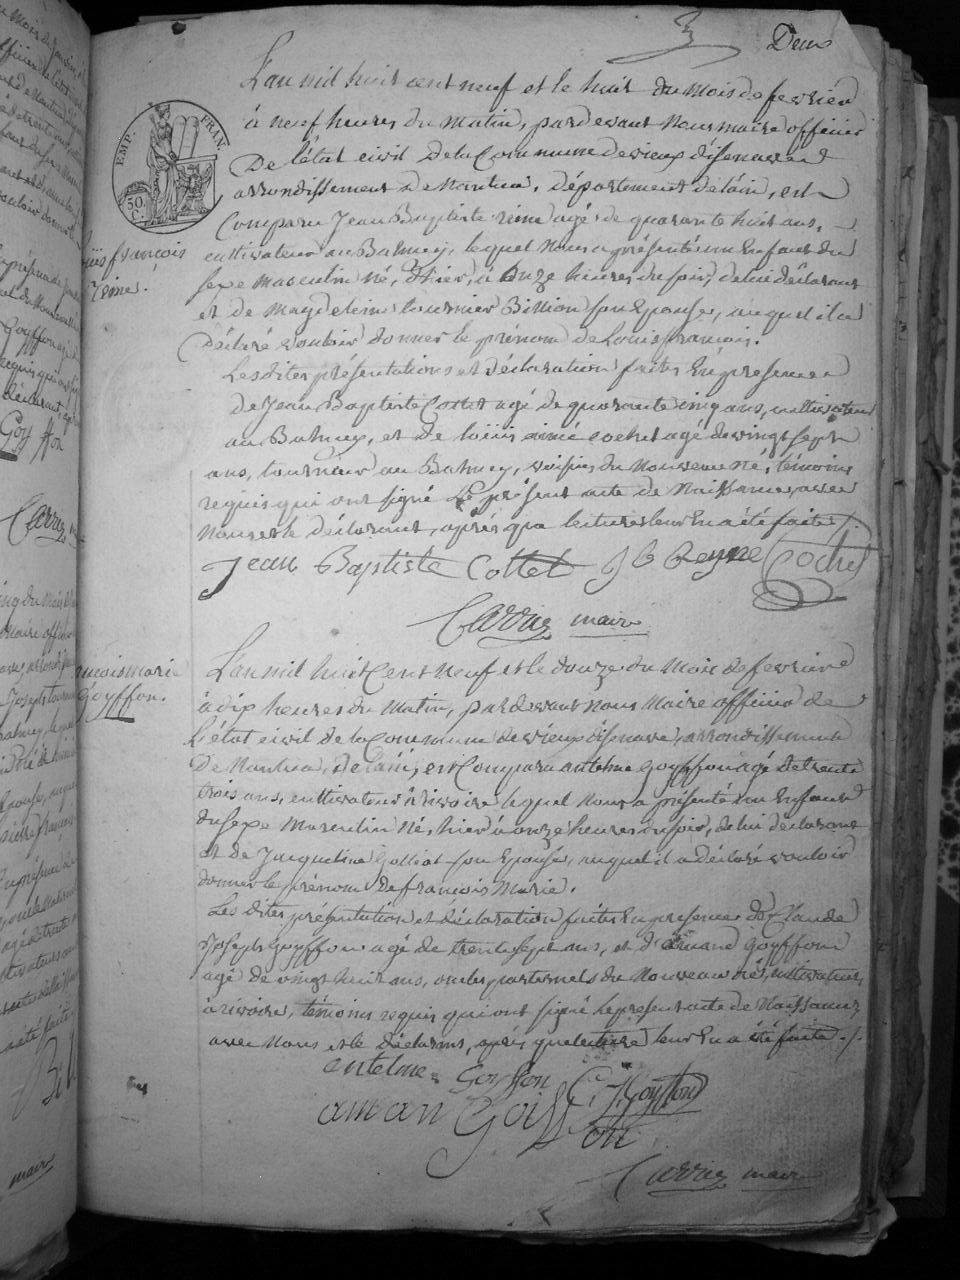 Deux
L'an mil huit cent neuf et le huit du mois de fevrier
à neuf heures du matin, pardevant nous maire officier
De l'état civil de la Commune de vieux d'isenave
arrondissement de Nantua, département de l'ain, est
Comparu Jean Baptiste reine agé de quarante huit ans,
cultivateur au Balmey, lequel nous a présenté un Enfant du
sexe masculin né, d'hier, à Onze heures du soir, de lui déclarant
et de Magdeleine tournier Billion son Epouse, auquel il a
déclaré vouloir donner le prénom de Louis françois.
Les dites présentations et déclaration faites En presence
de Jean Baptiste Cottet agé de quarante cinq ans, cultivateur
au Balmey, et de loüis aimé cochet agé de vingt sept
ans, tourneur au Balmey, voisins du nouveau né, témoins
requis qui ont signé Le présent acte de Naissance, avec
Nous et le déclarant, après que lecture leur En a été faite ./.
EMP. FRAN.
50.
C.
françois
reine.
Jean Baptiste Cottet J B Reyne Cochet
Carrier maire
L'an mil huit Cent neuf et le douze du mois de fevrier
à dix heures du matin, pardevant nous Maire officier de
L'état civil de la Commune de vieux d'isenave, arrondissement
De Nantua, de l'ain, est Comparu antelme goyffon agé de trente
trois ans, cultivateur à rivoire lequel nous a présenté un Enfant
du sexe masculin né, hier à onze heures du soir, de lui déclarant
et de Jacqueline Golliat son Epouse, auquel il a déclaré vouloir
donner le prénom de françois Marie.
Les dites présentation et déclaration faites En presence de Claude
Joseph Goyffon agé de trente sept ans, et d'amand goyffon
agé de vingt huit ans, oncles paternels du Nouveau né, cultivateurs
à rivoire, témoins requis qui ont signé le present acte de Naissance
avec Nous et le déclarant, après que lecture leur En a été faite ./.
marie
Goyffon.
antelme Goyffon C. J. Goyffon
aman Goiffon
Carrier maire